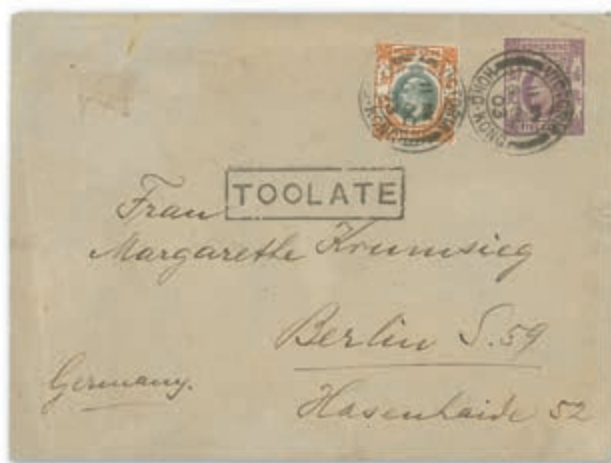 VICTORIA
HONG-KONG
03
TOOLATE
Frau
Margarethe Krumsieg
Berlin S.59
Germany.
Hasenhaide 52